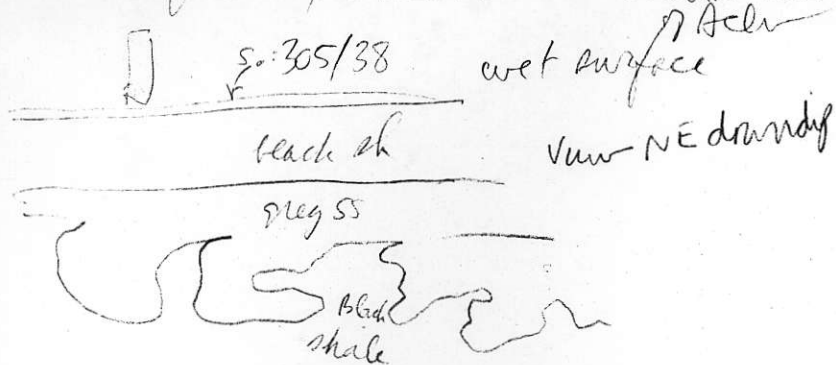 S₀: 305/38
wet surface
black sh
View NE downdip
grey SS
Black
shale